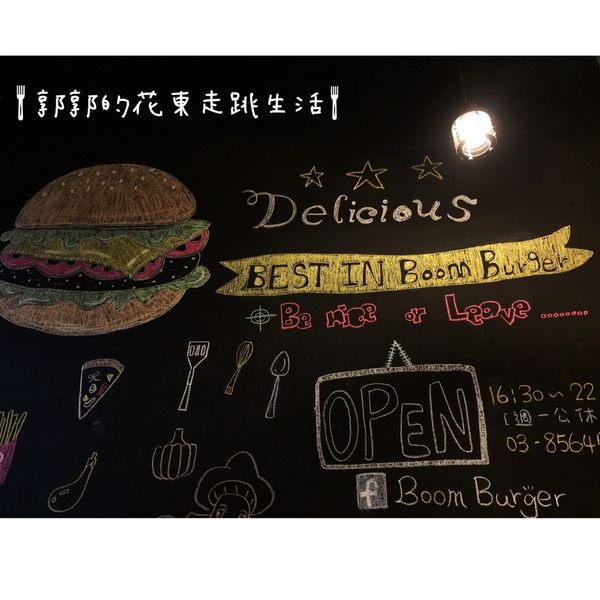 郭郭的花東走跳生活
Delicious
BEST IN Boom Burger
Be nice or Leave ........
OPEN
16:30～22
[週一公休
03-8564
f Boom Burger